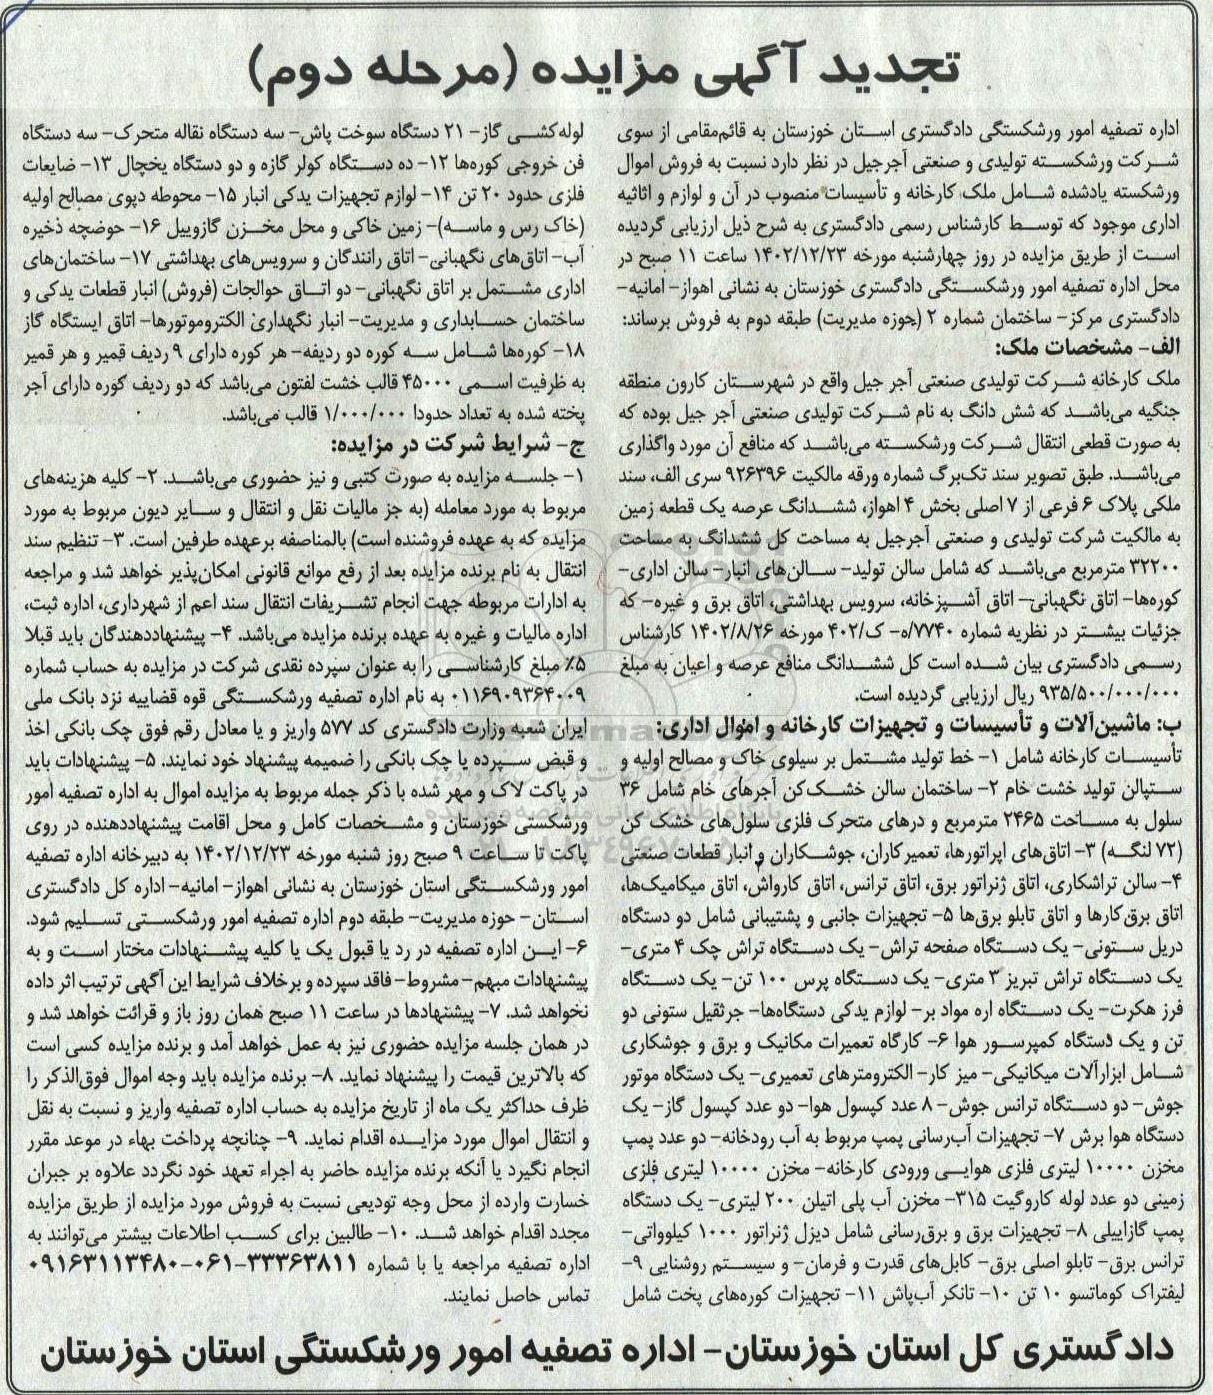 تجدید آگهی مزایده (مرحله دوم)
اداره تصفیه امور ورشکستگی دادگستری استان خوزستان به قائم‌مقامی از سوی
شرکت ورشکسته تولیدی و صنعتی آجرجیل در نظر دارد نسبت به فروش اموال
ورشکسته یادشده شامل ملک کارخانه و تأسیسات منصوب در آن و لوازم و اثاثیه
اداری موجود که توسط کارشناس رسمی دادگستری به شرح ذیل ارزیابی گردیده
است از طریق مزایده در روز چهارشنبه مورخه ۱۴۰۲/۱۲/۲۳ ساعت ۱۱ صبح در
محل اداره تصفیه امور ورشکستگی دادگستری خوزستان به نشانی اهواز- امانیه-
دادگستری مرکز- ساختمان شماره ۲ (حوزه مدیریت) طبقه دوم به فروش برساند:
الف- مشخصات ملک:
ملک کارخانه شرکت تولیدی صنعتی آجر جیل واقع در شهرستان کارون منطقه
جنگیه می‌باشد که شش دانگ به نام شرکت تولیدی صنعتی آجر جیل بوده که
به صورت قطعی انتقال شرکت ورشکسته می‌باشد که منافع آن مورد واگذاری
می‌باشد. طبق تصویر سند تک‌برگ شماره ورقه مالکیت ۹۲۶۳۹۶ سری الف، سند
ملکی پلاک ۶ فرعی از ۷ اصلی بخش ۴ اهواز، ششدانگ عرصه یک قطعه زمین
به مالکیت شرکت تولیدی و صنعتی آجرجیل به مساحت کل ششدانگ به مساحت
۳۲۲۰۰ مترمربع می‌باشد که شامل سالن تولید- سالن‌های انبار- سالن اداری-
کوره‌ها- اتاق نگهبانی- اتاق آشپزخانه، سرویس بهداشتی، اتاق برق و غیره- که
جزئیات بیشتر در نظریه شماره ۷۷۴۰/ه- ک/۴۰۲ مورخه ۱۴۰۲/۸/۲۶ کارشناس
رسمی دادگستری بیان شده است کل ششدانگ منافع عرصه و اعیان به مبلغ
۹۳۵/۵۰۰/۰۰۰/۰۰۰ ریال ارزیابی گردیده است.
ب: ماشین‌آلات و تأسیسات و تجهیزات کارخانه و اموال اداری:
تأسیسات کارخانه شامل ۱- خط تولید مشتمل بر سیلوی خاک و مصالح اولیه و
ستپالن تولید خشت خام ۲- ساختمان سالن خشک‌کن آجرهای خام شامل ۳۶
سلول به مساحت ۲۴۶۵ مترمربع و درهای متحرک فلزی سلول‌های خشک کن
(۷۲ لنگه) ۳- اتاق‌های اپراتورها، تعمیرکاران، جوشکاران و انبار قطعات صنعتی
۴- سالن تراشکاری، اتاق ژنراتور برق، اتاق ترانس، اتاق کارواش، اتاق میکامیک‌ها،
اتاق برق‌کارها و اتاق تابلو برق‌ها ۵- تجهیزات جانبی و پشتیبانی شامل دو دستگاه
دریل ستونی- یک دستگاه صفحه تراش- یک دستگاه تراش چک ۴ متری-
یک دستگاه تراش تبریز ۳ متری- یک دستگاه پرس ۱۰۰ تن- یک دستگاه
فرز هکرت- یک دستگاه اره مواد بر- لوازم یدکی دستگاه‌ها- جرثقیل ستونی دو
تن و یک دستگاه کمپرسور هوا ۶- کارگاه تعمیرات مکانیک و برق و جوشکاری
شامل ابزارآلات میکانیکی- میز کار- الکترومترهای تعمیری- یک دستگاه موتور
جوش- دو دستگاه ترانس جوش- ۸ عدد کپسول هوا- دو عدد کپسول گاز- یک
دستگاه هوا برش ۷- تجهیزات آب‌رسانی پمپ مربوط به آب رودخانه- دو عدد پمپ
مخزن ۱۰۰۰۰ لیتری فلزی هوایی ورودی کارخانه- مخزن ۱۰۰۰۰ لیتری فلزی
زمینی دو عدد لوله کاروگیت ۳۱۵- مخزن آب پلی اتیلن ۲۰۰ لیتری- یک دستگاه
پمپ گازاییلی ۸- تجهیزات برق و برق‌رسانی شامل دیزل ژنراتور ۱۰۰۰ کیلوواتی-
ترانس برق- تابلو اصلی برق- کابل‌های قدرت و فرمان- و سیستم روشنایی ۹-
لیفتراک کوماتسو ۱۰ تن ۱۰- تانکر آب‌پاش ۱۱- تجهیزات کوره‌های پخت شامل
لوله‌کشی گاز- ۲۱ دستگاه سوخت پاش- سه دستگاه نقاله متحرک- سه دستگاه
فن خروجی کوره‌ها ۱۲- ده دستگاه کولر گازه و دو دستگاه یخچال ۱۳- ضایعات
فلزی حدود ۲۰ تن ۱۴- لوازم تجهیزات یدکی انبار ۱۵- محوطه دپوی مصالح اولیه
(خاک رس و ماسه)- زمین خاکی و محل مخزن گازوییل ۱۶- حوضچه ذخیره
آب- اتاق‌های نگهبانی- اتاق رانندگان و سرویس‌های بهداشتی ۱۷- ساختمان‌های
اداری مشتمل بر اتاق نگهبانی- دو اتاق حوالجات (فروش) انبار قطعات یدکی و
ساختمان حسابداری و مدیریت- انبار نگهداری الکتروموتورها- اتاق ایستگاه گاز
۱۸- کوره‌ها شامل سه کوره دو ردیفه- هر کوره دارای ۹ ردیف قمیر و هر قمیر
به ظرفیت اسمی ۴۵۰۰۰ قالب خشت لفتون می‌باشد که دو ردیف کوره دارای آجر
پخته شده به تعداد حدودا ۱/۰۰۰/۰۰۰ قالب می‌باشد.
ج- شرایط شرکت در مزایده:
۱- جلسه مزایده به صورت کتبی و نیز حضوری می‌باشد. ۲- کلیه هزینه‌های
مربوط به مورد معامله (به جز مالیات نقل و انتقال و سایر دیون مربوط به مورد
مزایده که به عهده فروشنده است) بالمناصفه برعهده طرفین است. ۳- تنظیم سند
انتقال به نام برنده مزایده بعد از رفع موانع قانونی امکان‌پذیر خواهد شد و مراجعه
به ادارات مربوطه جهت انجام تشریفات انتقال سند اعم از شهرداری، اداره ثبت،
اداره مالیات و غیره به عهده برنده مزایده می‌باشد. ۴- پیشنهاددهندگان باید قبلا
۵٪ مبلغ کارشناسی را به عنوان سپرده نقدی شرکت در مزایده به حساب شماره
۰۱۱۶۹۰۹۳۶۴۰۰۹ به نام اداره تصفیه ورشکستگی قوه قضاییه نزد بانک ملی
ایران شعبه وزارت دادگستری کد ۵۷۷ واریز و یا معادل رقم فوق چک بانکی اخذ
و قبض سپرده یا چک بانکی را ضمیمه پیشنهاد خود نمایند. ۵- پیشنهادات باید
در پاکت لاک و مهر شده با ذکر جمله مربوط به مزایده اموال به اداره تصفیه امور
ورشکستی خوزستان و مشخصات کامل و محل اقامت پیشنهاددهنده در روی
پاکت تا ساعت ۹ صبح روز شنبه مورخه ۱۴۰۲/۱۲/۲۳ به دبیرخانه اداره تصفیه
امور ورشکستگی استان خوزستان به نشانی اهواز- امانیه- اداره کل دادگستری
استان- حوزه مدیریت- طبقه دوم اداره تصفیه امور ورشکستی تسلیم شود.
۶- این اداره تصفیه در رد یا قبول یک یا کلیه پیشنهادات مختار است و به
پیشنهادات مبهم- مشروط- فاقد سپرده و برخلاف شرایط این آگهی ترتیب اثر داده
نخواهد شد. ۷- پیشنهادها در ساعت ۱۱ صبح همان روز باز و قرائت خواهد شد و
در همان جلسه مزایده حضوری نیز به عمل خواهد آمد و برنده مزایده کسی است
که بالاترین قیمت را پیشنهاد نماید. ۸- برنده مزایده باید وجه اموال فوق‌الذکر را
ظرف حداکثر یک ماه از تاریخ مزایده به حساب اداره تصفیه واریز و نسبت به نقل
و انتقال اموال مورد مزایده اقدام نماید. ۹- چنانچه پرداخت بهاء در موعد مقرر
انجام نگیرد یا آنکه برنده مزایده حاضر به اجراء تعهد خود نگردد علاوه بر جبران
خسارت وارده از محل وجه تودیعی نسبت به فروش مورد مزایده از طریق مزایده
مجدد اقدام خواهد شد. ۱۰- طالبین برای کسب اطلاعات بیشتر می‌توانند به
اداره تصفیه مراجعه یا با شماره ۳۳۳۶۳۸۱۱-۰۶۱-۰۹۱۶۳۱۱۳۴۸۰
تماس حاصل نمایند.
دادگستری کل استان خوزستان- اداره تصفیه امور ورشکستگی استان خوزستان